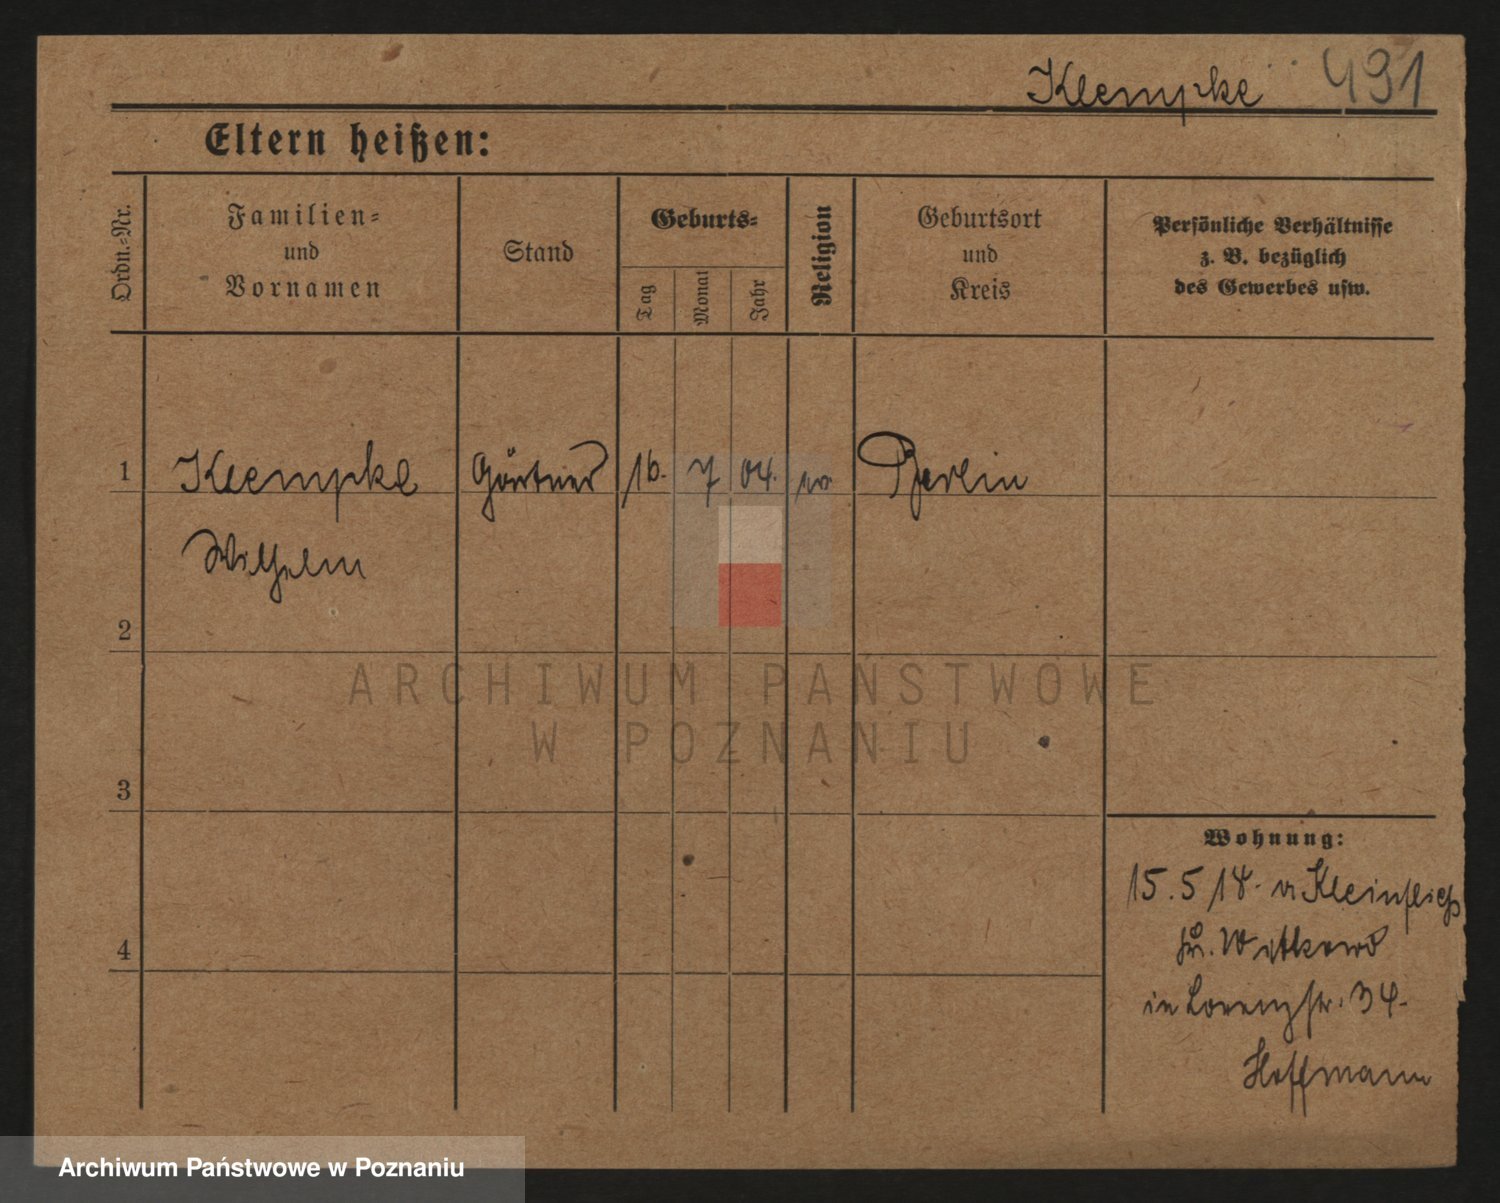 Klempke 491
Eltern heißen:
Ordn.-Nr.
Familien-
und
Vornamen
Stand
Geburts-
Tag
Monat
Jahr
Religion
Geburtsort
und
Kreis
Persönliche Verhältnisse
z. B. bezüglich
des Gewerbes usw.
1 Klempke Gärtner 16. 7 04. ev Berlin
Wilhelm
2
ARCHIWUM PAŃSTWOWE
W POZNANIU
3
4
Wohnung:
15.5 18. v Kleinfließ
Kr. Witkowo
in Lorenzstr. 34.
Hoffmann
Archiwum Państwowe w Poznaniu